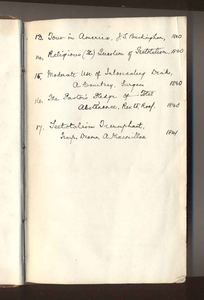 13. Tour in America, J. S. Buckingham, 1840
14. Religious (The) Question of Teetotalism, 1840
15. Moderate Use of Intoxicating Drinks,
A Country Surgeon 1840
16. The Pastor's Pledge of Total
Abstinence, Revd. 1840
17. Teetotalism Triumphant,
Temp. Drama 1841